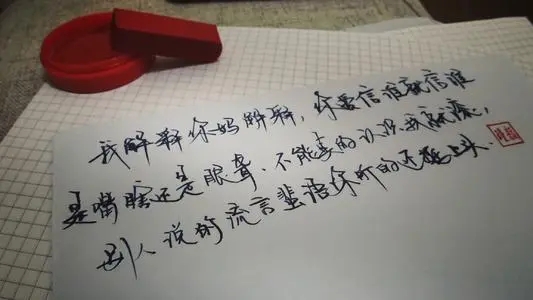 我解释你妈解释,你爱信谁就信谁
是嘴瞎还是眼聋,不能真的认识我就滚,
别人说的流言蜚语你听的还挺上头.